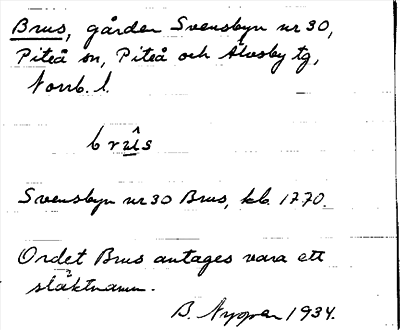 Brus, gården Svensbyn nr 30,
Piteå sn, Piteå och Älvsby tg,
Norrb. l.
brûs
Svensbyn nr 30 Brus, kb. 1770.
Ordet Brus antages vara ett
släktnamn.
B. Nyppen 1934.